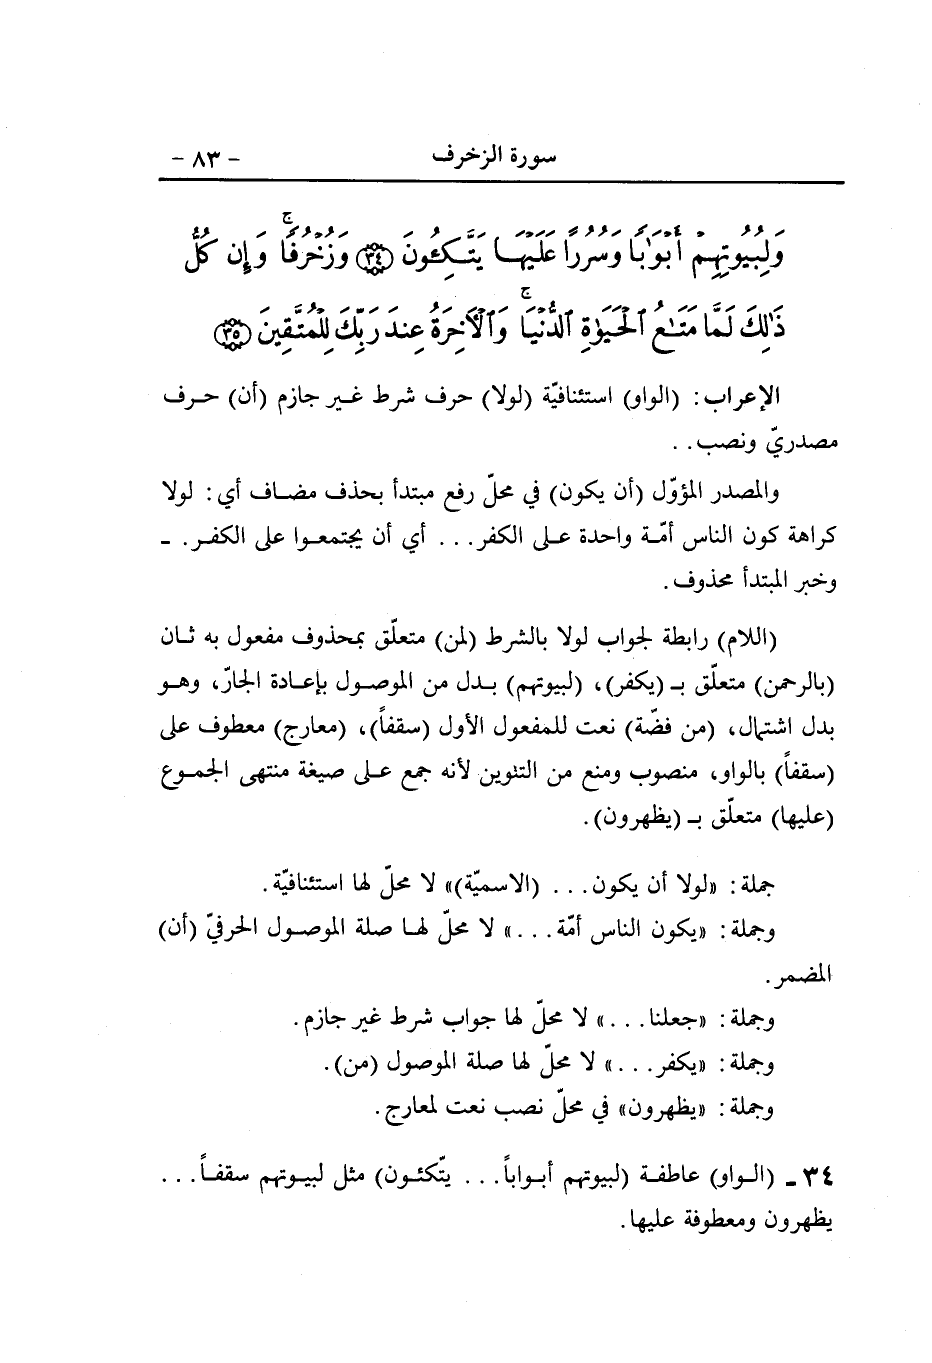 سورة الزخرف - ٨٣ -
وَلِبُيُوتِهِمْ أَبْوَٰبًا وَسُرُرًا عَلَيْهَا يَتَّكِـُٔونَ ﴿٣٤﴾ وَزُخْرُفًا ۚ وَإِن كُلُّ
ذَٰلِكَ لَمَّا مَتَـٰعُ ٱلْحَيَوٰةِ ٱلدُّنْيَا ۚ وَٱلْـَٔاخِرَةُ عِندَ رَبِّكَ لِلْمُتَّقِينَ ﴿٣٥﴾
الإعراب: (الواو) استئنافيّة (لولا) حرف شرط غير جازم (أن) حرف
مصدريّ ونصب . .
والمصدر المؤوّل (أن يكون) في محلّ رفع مبتدأ بحذف مضاف أي: لولا
كراهة كون الناس أمّة واحدة على الكفر . . . أي أن يجتمعوا على الكفر. -
وخبر المبتدأ محذوف.
(اللام) رابطة لجواب لولا بالشرط (لمن) متعلّق بمحذوف مفعول به ثان
(بالرحمن) متعلّق بـ (يكفر)، (لبيوتهم) بدل من الموصول بإعادة الجارّ، وهو
بدل اشتمال، (من فضّة) نعت للمفعول الأول (سقفاً)، (معارج) معطوف على
(سقفاً) بالواو، منصوب ومنع من التنوين لأنه جمع على صيغة منتهى الجموع
(عليها) متعلّق بـ (يظهرون).
جملة: «لولا أن يكون . . . (الاسميّة)» لا محلّ لها استئنافيّة.
وجملة: «يكون الناس أمّة . . .» لا محلّ لها صلة الموصول الحرفيّ (أن)
المضمر.
وجملة: «جعلنا . . .» لا محلّ لها جواب شرط غير جازم.
وجملة: «يكفر . . .» لا محلّ لها صلة الموصول (من).
وجملة: «يظهرون» في محلّ نصب نعت لمعارج.
٣٤ - (الواو) عاطفة (لبيوتهم أبواباً . . . يتّكئون) مثل لبيوتهم سقفاً . . .
يظهرون ومعطوفة عليها.